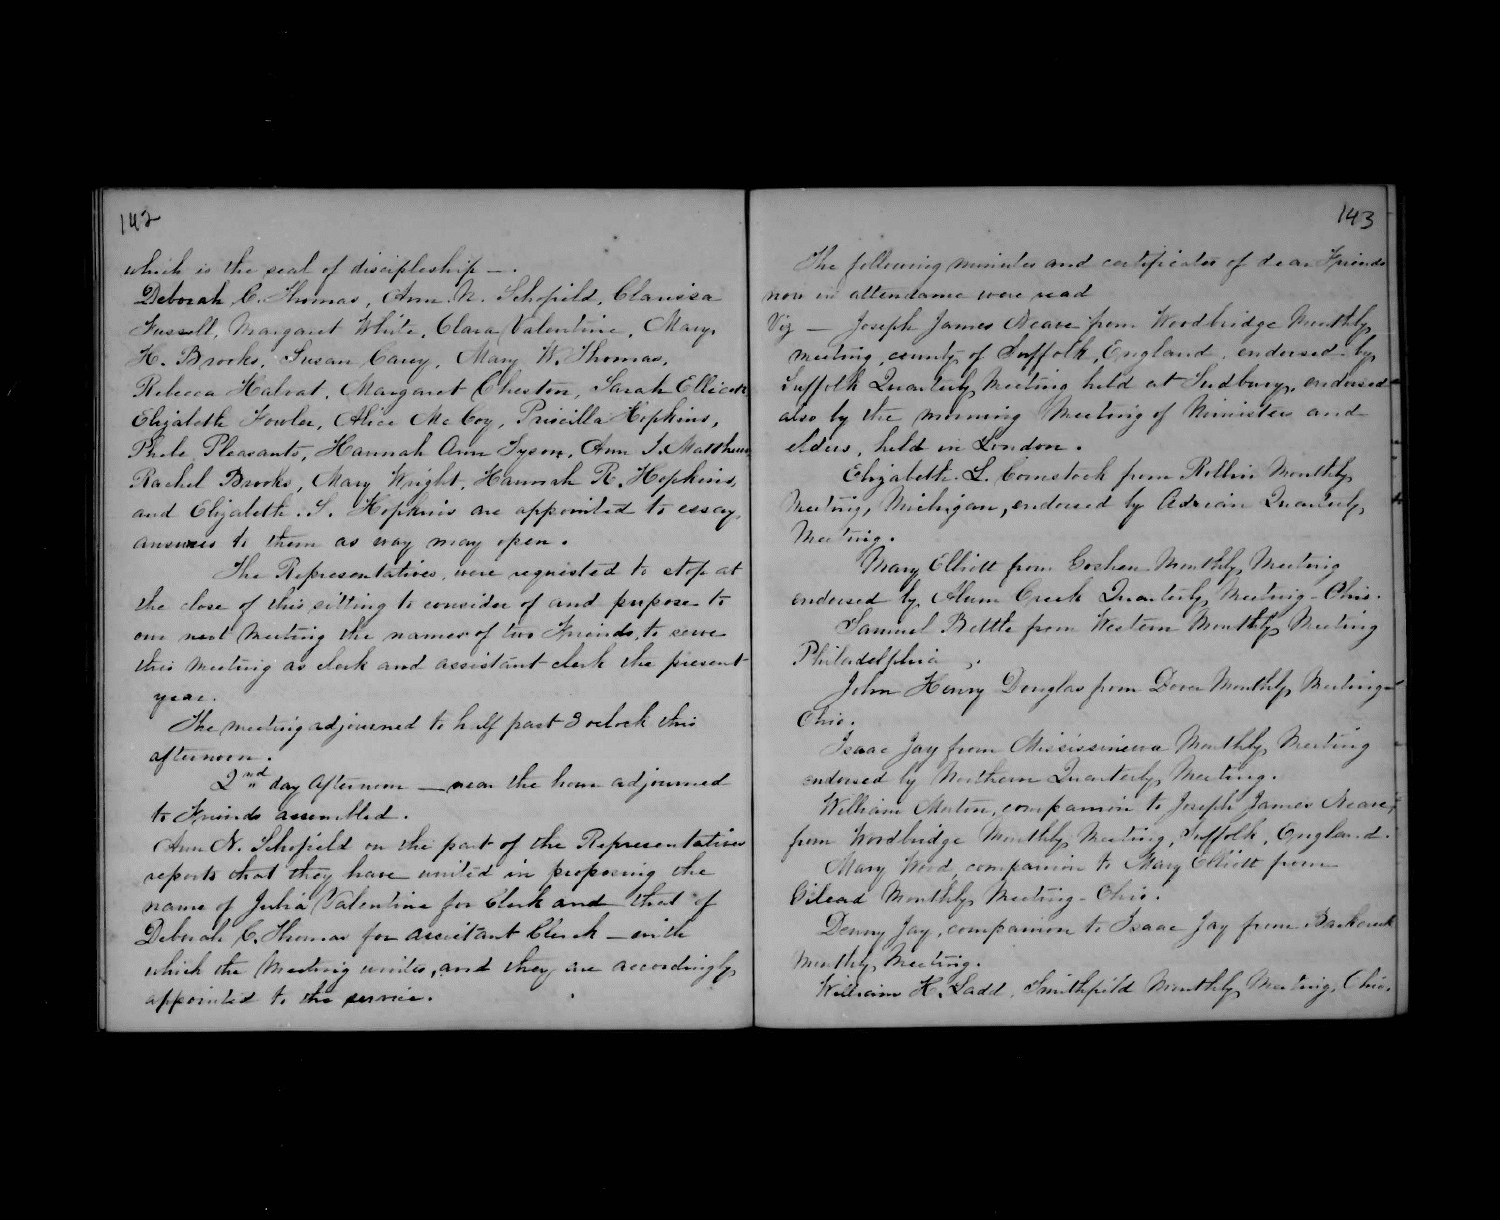 142
which is the seal of discipleship —.
Deborah C. Thomas, Ann. N. Schofield, Clarissa
Fussell, Margaret White, Clara Valentine, Mary,
H. Brooks, Susan Carey, Mary W. Thomas,
Rebecca Halvat, Margaret Cheston, Sarah Ellicott
Elizabeth Fowler, Alice McCoy, Priscilla Hopkins,
Phebe Pleasants, Hannah Ann Tyson, Ann J. Matthews
Rachel Brooks, Mary Wright, Hannah R. Hopkins,
and Elizabeth. S. Hopkins are appointed to essay
answers to them as way may open.
The Representatives, were requested to stop at
the close of this sitting to consider of and propose to
our next Meeting the names of two Friends, to serve
this Meeting as clerk and assistant clerk the present
year.
The meeting adjourned to half past 3 oclock this
afternoon.
2nd day afternoon — near the hour adjourned
to Friends assembled.
Ann N. Schofield on the part of the Representatives
reports that they have united in proposing the
name of Julia Valentine for Clerk and that of
Deborah C. Thomas for assistant Clerk — with
which the Meeting unites, and they are accordingly
appointed to the service.
143
The following minutes and certificates of dear Friends
now in attendance were read
Viz — Joseph James Neave from Woodbridge Monthly
meeting, county of Suffolk, England, endorsed by
Suffolk Quarterly Meeting held at Sudbury, endorsed
also by the morning Meeting of Ministers and
elders, held in London.
Elizabeth. L. Comstock from Rollin Monthly
Meeting, Michigan, endorsed by Adrian Quarterly
Meeting.
Mary Elliott from Goshen Monthly Meeting
endorsed by Alum Creek Quarterly Meeting - Ohio.
Samuel Bettle from Western Monthly Meeting
Philadelphia.
John Henry Douglas from Dover Monthly Meeting
Ohio.
Isaac Jay from Mississinewa Monthly Meeting
endorsed by Northern Quarterly Meeting.
William Norton, companion to Joseph James Neave,
from Woodbridge Monthly Meeting, Suffolk, England.
Mary Wood, companion to Mary Elliott from
Gilead Monthly Meeting - Ohio.
Denny Jay, companion to Isaac Jay from
Monthly Meeting.
William H. Ladd, Smithfield Monthly Meeting, Ohio.